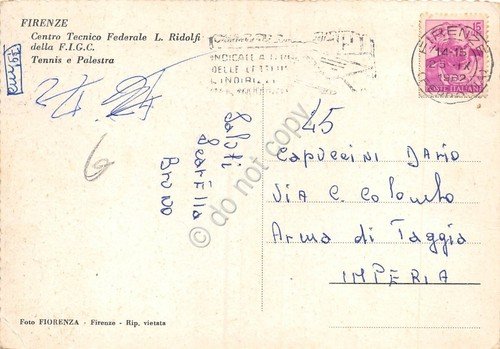 FIRENZE
Centro Tecnico Federale L. Ridolfi
della F.I.G.C.
Tennis e Palestra
INDICATE A
DELLE LETTERE
L'INDIRIZZO
FIRENZE
14-15
1962
15
POSTE ITALIANE
45
6
Saluti
Bruno
Capuccini Dario
Via C. Colombo
Arma di Taggia
IMPERIA
© do not copy
Foto FIORENZA - Firenze - Rip. vietata